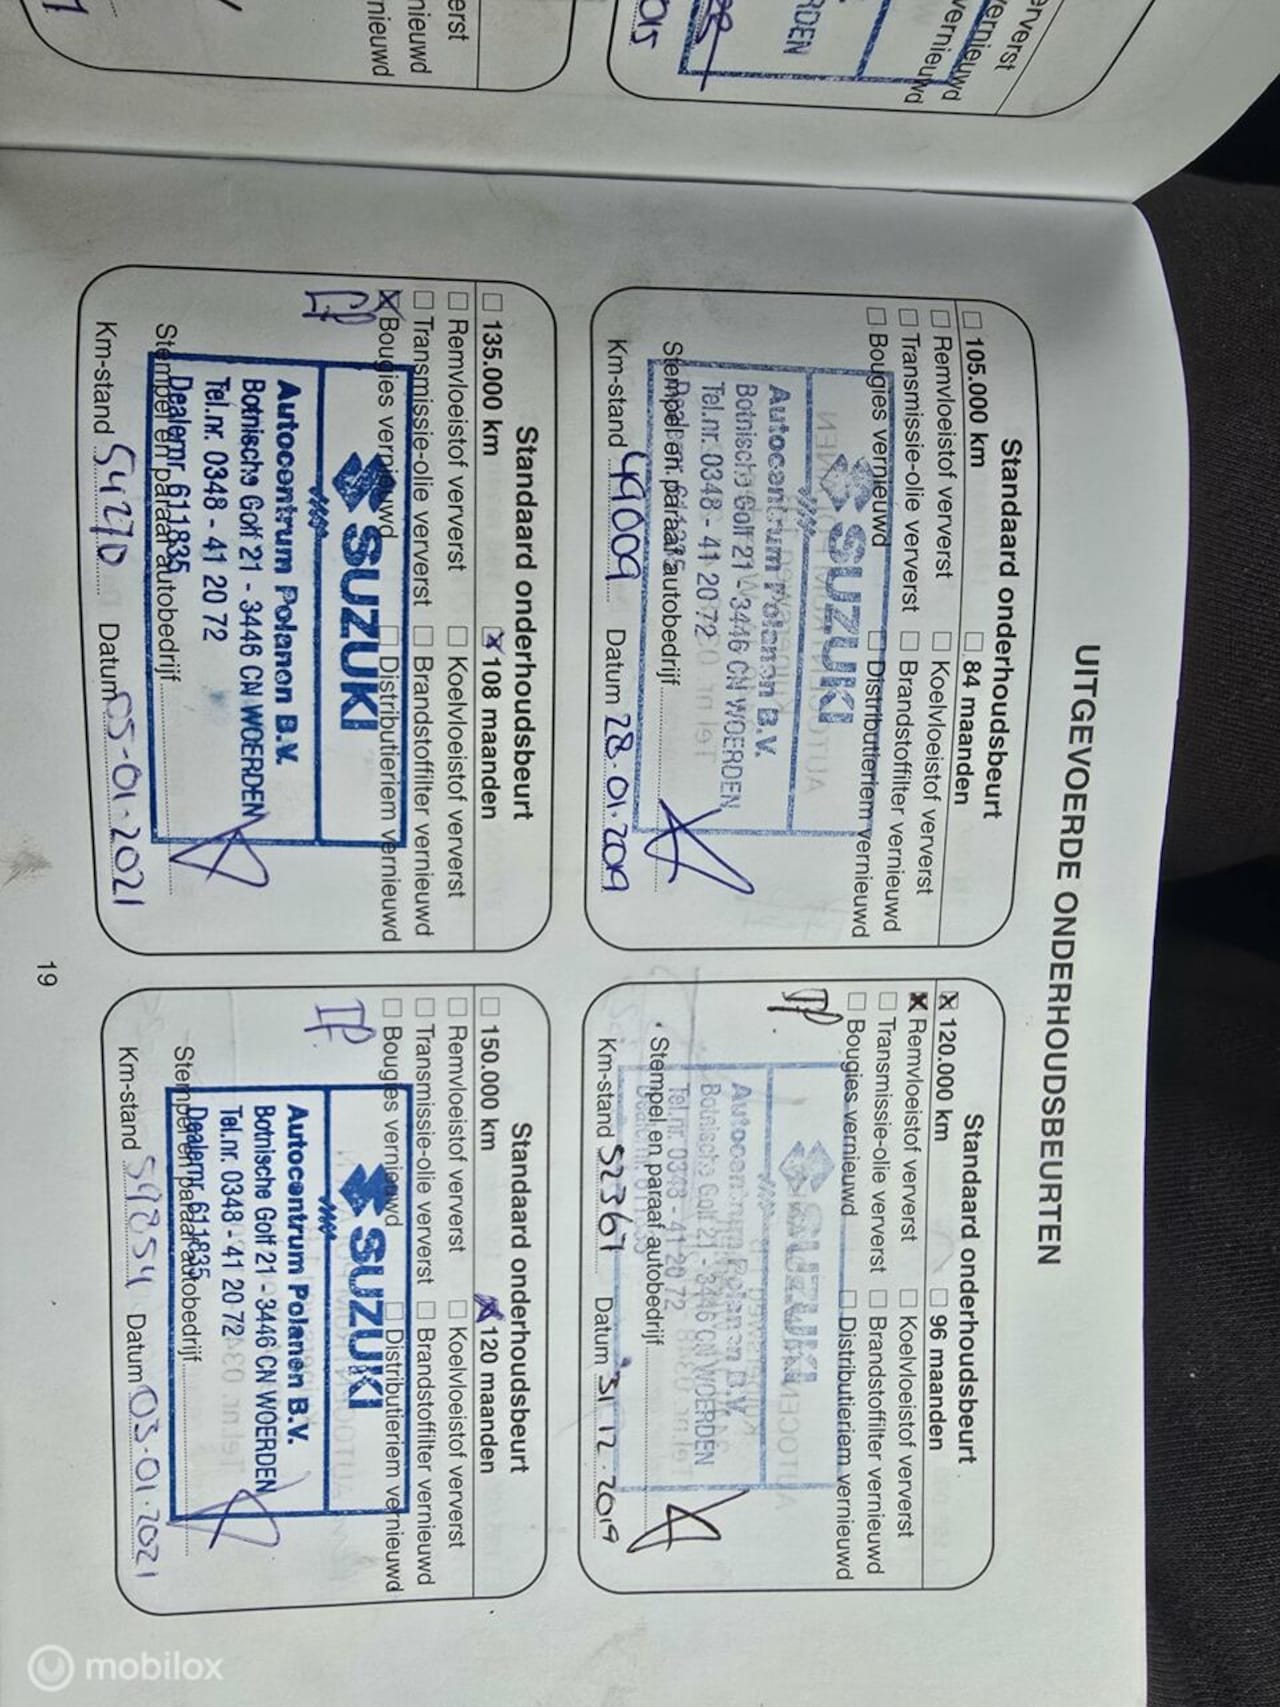 erverst
vernieuwd
vernieuwd
RDEN
015
erst
nieuwd
nieuwd
UITGEVOERDE ONDERHOUDSBEURTEN
Standaard onderhoudsbeurt
105.000 km 84 maanden
Remvloeistof ververst Koelvloeistof ververst
Transmissie-olie ververst Brandstoffilter vernieuwd
Bougies vernieuwd Distributieriem vernieuwd
SUZUKI
Autocentrum Polanen B.V.
Botnische Golf 21 - 3446 CN WOERDEN
Tel.nr. 0348 - 41 20 72
Stempel en paraaf autobedrijf
Km-stand 49009 Datum 28-01-2019
Standaard onderhoudsbeurt
X 120.000 km 96 maanden
X Remvloeistof ververst Koelvloeistof ververst
Transmissie-olie ververst Brandstoffilter vernieuwd
Bougies vernieuwd Distributieriem vernieuwd
SUZUKI
Autocentrum Polanen B.V.
Botnische Golf 21 - 3446 CN WOERDEN
Tel.nr. 0348 - 41 20 72
Stempel en paraaf autobedrijf
Km-stand 52367 Datum 31-12-2019
Standaard onderhoudsbeurt
135.000 km X 108 maanden
Remvloeistof ververst Koelvloeistof ververst
Transmissie-olie ververst Brandstoffilter vernieuwd
X Bougies vernieuwd Distributieriem vernieuwd
SUZUKI
Autocentrum Polanen B.V.
Botnische Golf 21 - 3446 CN WOERDEN
Tel.nr. 0348 - 41 20 72
Dealernr. 611835
Stempel en paraaf autobedrijf
Km-stand 54270 Datum 05-01-2021
Standaard onderhoudsbeurt
150.000 km X 120 maanden
Remvloeistof ververst Koelvloeistof ververst
Transmissie-olie ververst Brandstoffilter vernieuwd
Bougies vernieuwd Distributieriem vernieuwd
SUZUKI
Autocentrum Polanen B.V.
Botnische Golf 21 - 3446 CN WOERDEN
Tel.nr. 0348 - 41 20 72
Dealernr. 611835
Stempel en paraaf autobedrijf
Km-stand Datum 03-01-2021
19
mobilox